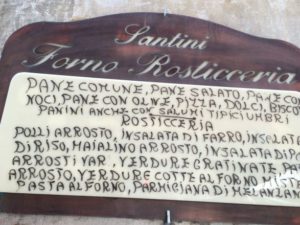 Santini
Forno Rosticceria
PANE COMUNE, PANE SALATO, PANE CON
NOCI, PANE CON OLIVE, PIZZA, DOLCI, BISCO
PANINI ANCHE CON SALUMI TIPICI UMBRI
ROSTICCERIA
POLLI ARROSTO, INSALATA DI FARRO, INSALA
DI RISO, MAIALINO ARROSTO, INSALATA DI
ARROSTI VAR, VERDURE GRATINATE, PA
ARROSTO, VERDURE COTTE AL FORNO MISTO
PASTA AL FORNO, PARMIGIANA DI MELANZAN